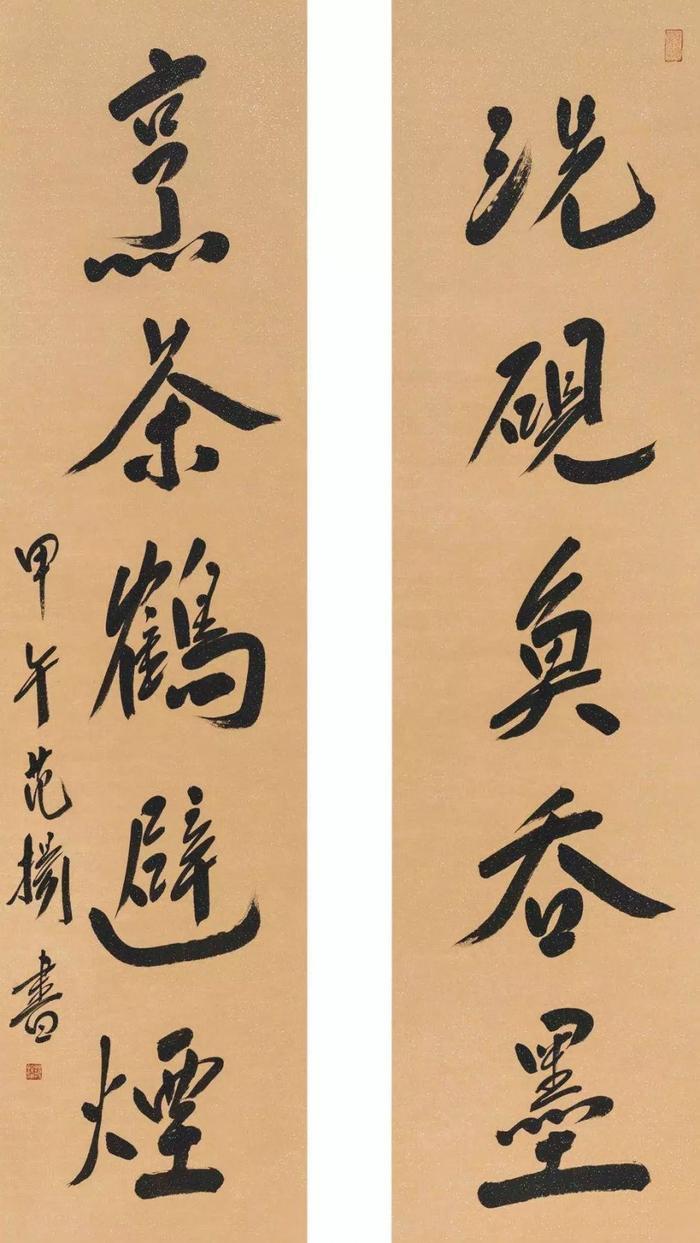 洗硯魚吞墨
烹茶鶴避煙
甲午范揚書